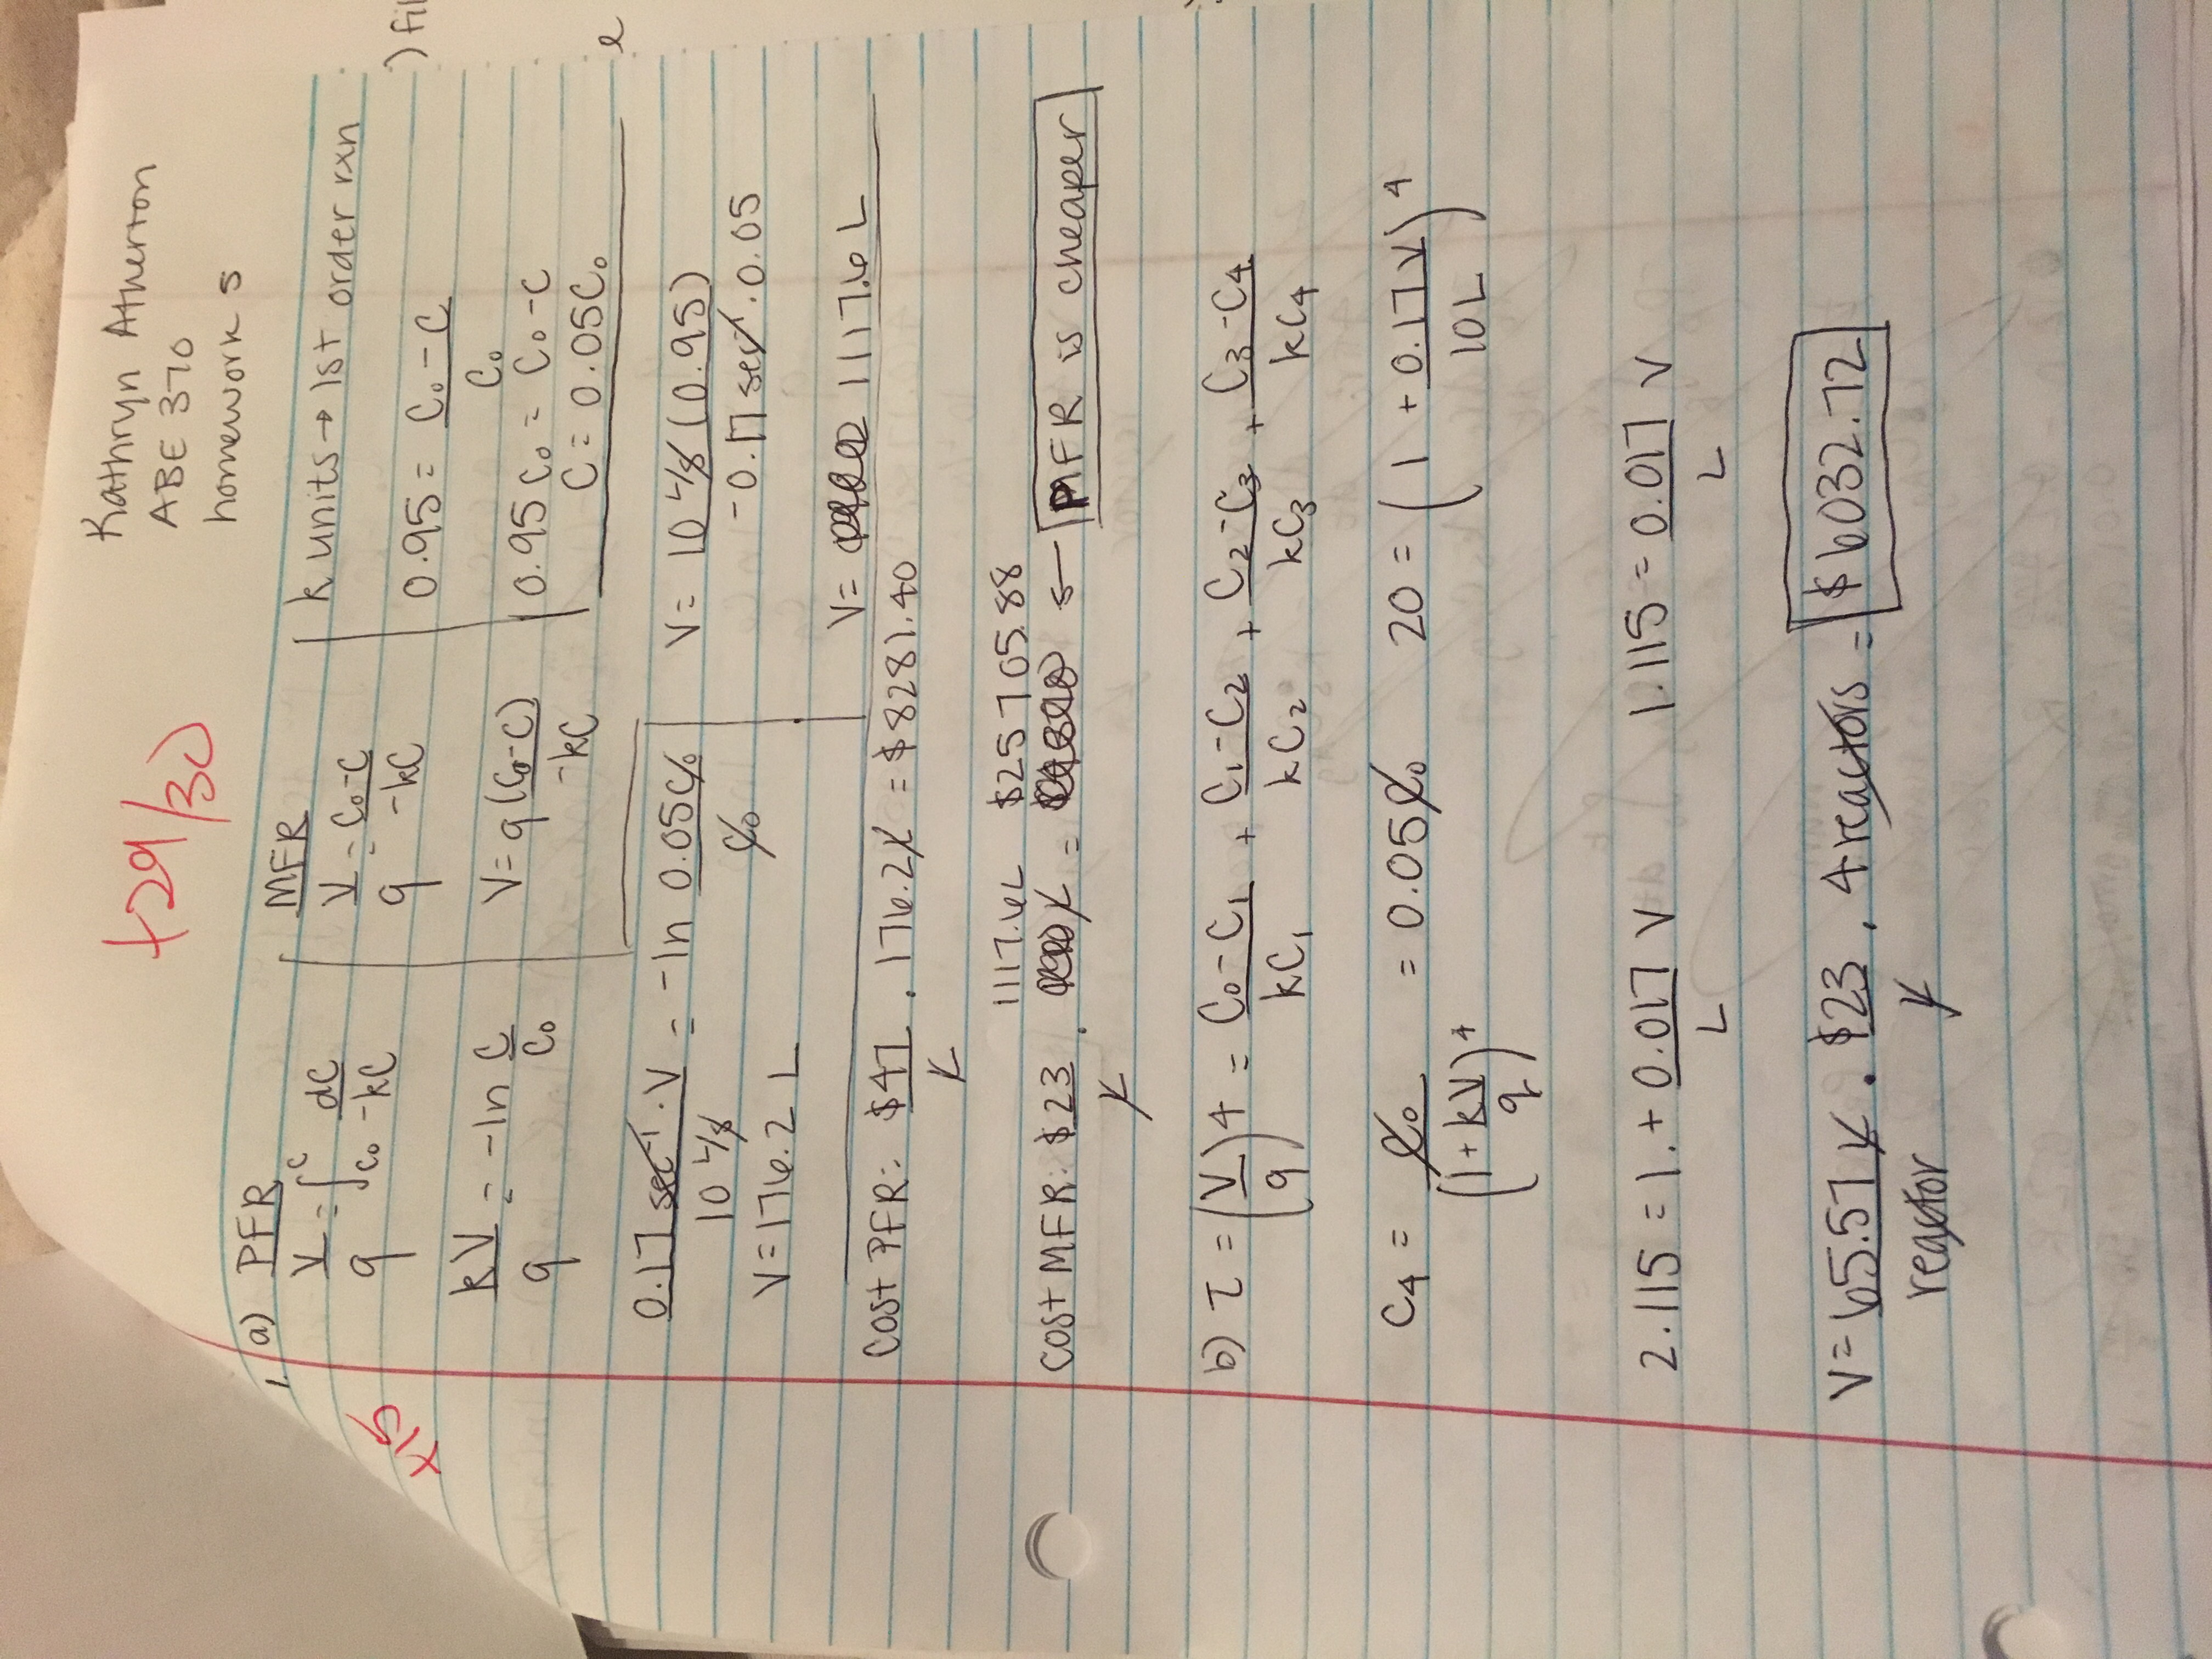 +29/30
Kathryn Atherton
ABE 370
homework 5
+15
1. a) PFR
V/q = ∫_C₀^C dC/-kC
kV/q = -ln C/C₀
MFR
V/q = C₀-C/-kC
V = q(C₀-C)/-kC
k units → 1st order rxn
0.95 = C₀-C/C₀
0.95C₀ = C₀-C
C = 0.05C₀
) fil
e
0.17 sec⁻¹ · V/10 L/s = -ln 0.05C₀/C₀
V = 176.2 L
V = 10 L/s (0.95)/-0.17 sec⁻¹ · 0.05
V = 1117.6 L
Cost PFR: $47/L · 176.2L = $8281.40
1117.6L $25705.88
Cost MFR: $23/L · L = ← PFR is cheaper
b) τ = (V/q)4 = C₀-C₁/kC₁ + C₁-C₂/kC₂ + C₂-C₃/kC₃ + C₃-C₄/kC₄
C₄ = C₀/(1+kV/q)⁴ = 0.05C₀ 20 = (1 + 0.17V/10L)⁴
2.115 = 1. + 0.017/L V 1.115 = 0.017/L V
V = 65.57 L/reactor · $23/L · 4 reactors = $6032.72